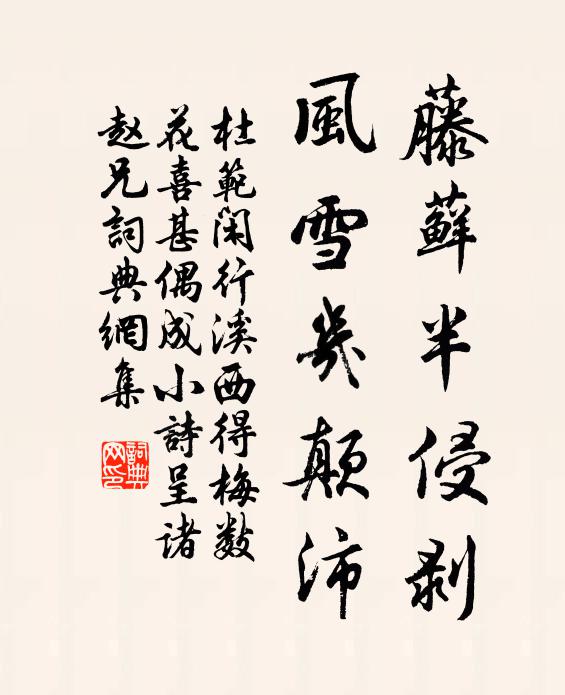 藤蘚半侵剥
風雪幾顛沛
杜範閑行溪西得梅数
花喜甚偶成小詩呈诸
赵兄詞典網集
詞典
网